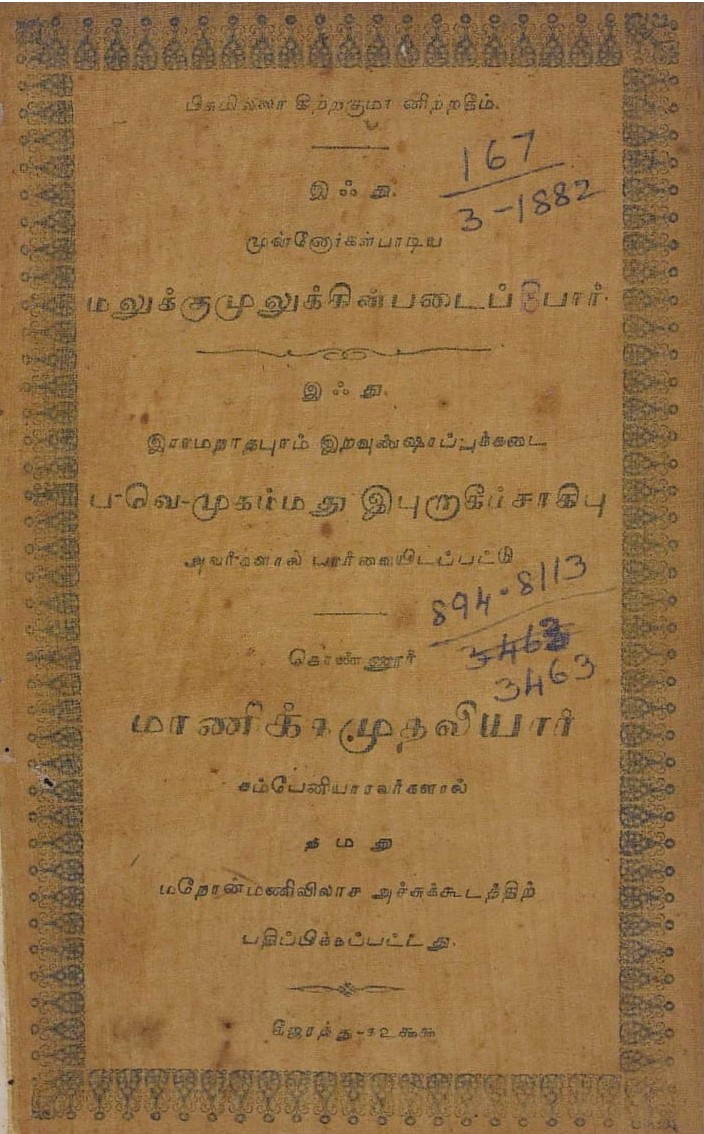 பிசுமில்லா கிற்றகுமா னிற்றகீம்.
167
இஃது.
3-1882
முன்னோர்கள்பாடிய
மலுக்குமுலுக்கின்படைப்போர்.
இஃது.
இராமநாதபுரம் இறவுண்ஷாப்புக்கடை
ப-வெ-முகம்மது இபுறாகீம்சாகிபு
அவர்களால் பார்வையிடப்பட்டு
894.8113
3463
கொண்ணூர்
3463
மாணிக்கமுதலியார்
கம்பேனியாரவர்களால்
தமது
மநோன்மணிவிலாச அச்சுக்கூடத்திற்
பதிப்பிக்கப்பட்டது.